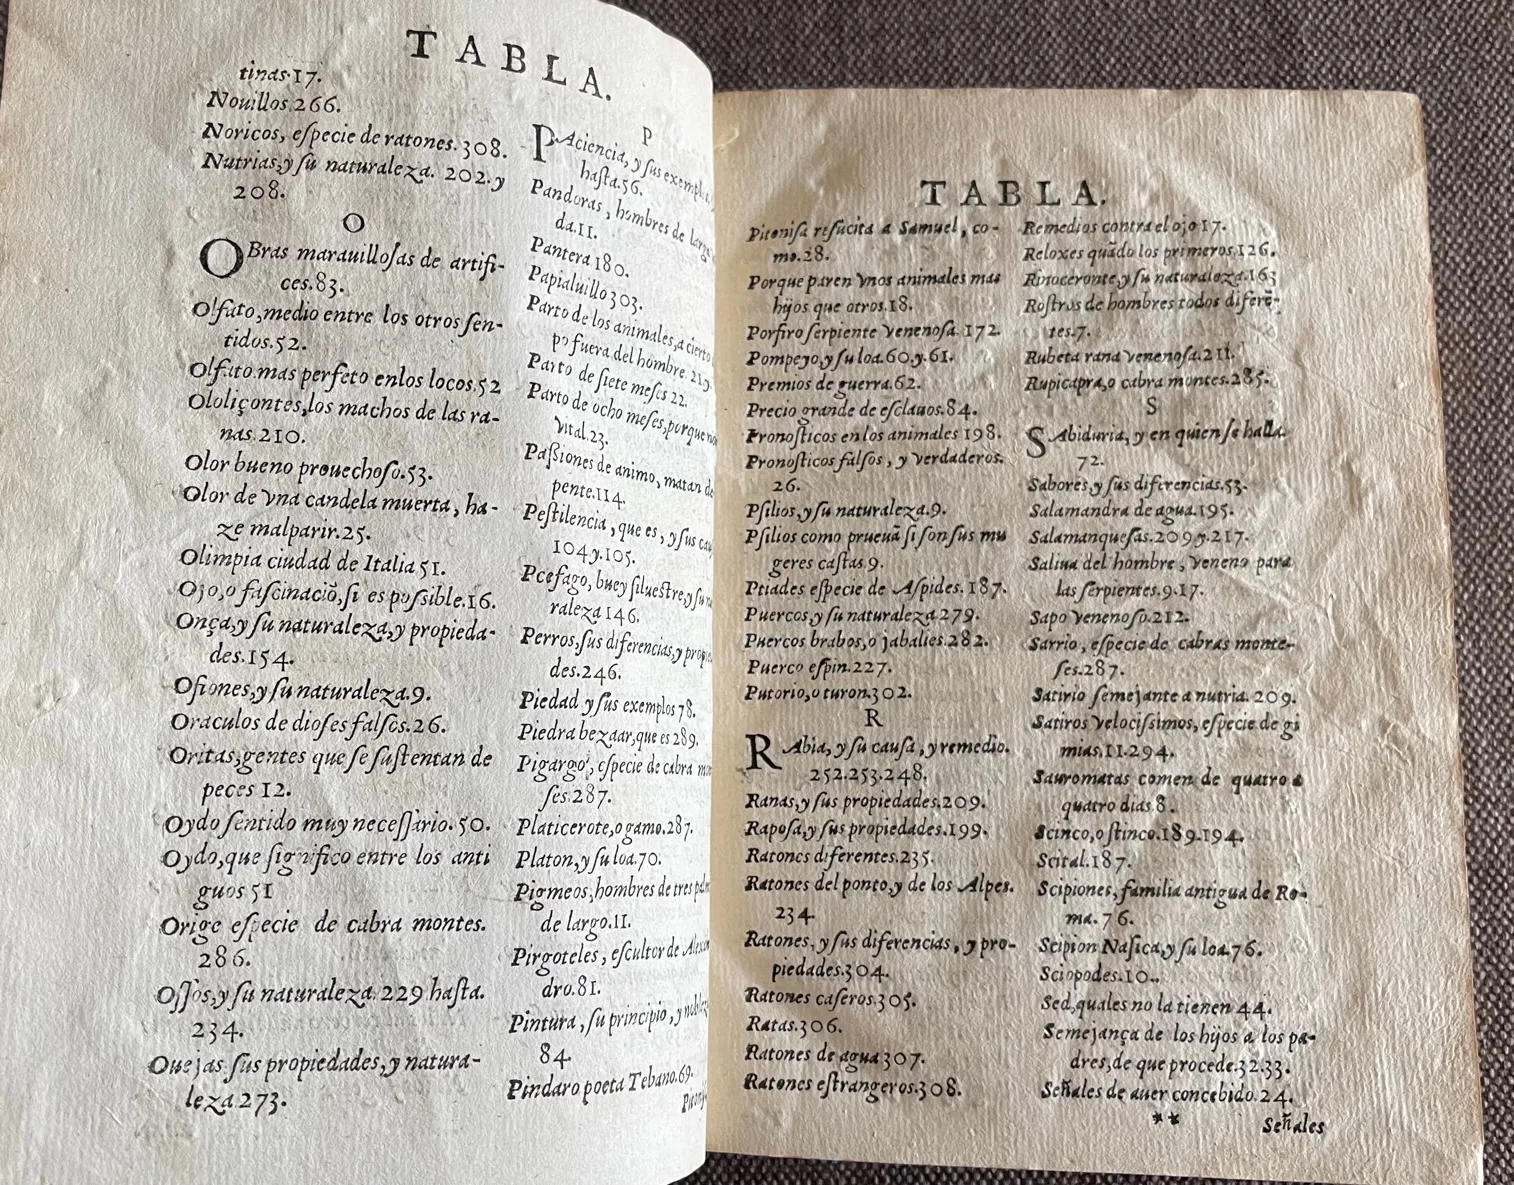 TABLA.
tinas.17.
Nouillos.266.
Noricos, eſpecie de ratones.308.
Nutrias,y ſu naturaleza. 202.y
208.
O
OBras marauilloſas de artifi-
ces.83.
Olfato,medio entre los otros ſen-
tidos.52.
Olfato mas perfeto enlos locos.52
Ololiçontes,los machos de las ra-
nas.210.
Olor bueno prouechoſo.53.
Olor de vna candela muerta, ha-
ze malparir.25.
Olimpia ciudad de Italia 51.
Ojo,o faſcinaciõ,ſi es poſsible.16.
Onça,y ſu naturaleza,y propieda-
des.154.
Oſiones,y ſu naturaleza.9.
Oraculos de dioſes falſos.26.
Oritas,gentes que ſe ſuſtentan de
peces 12.
Oydo ſentido muy neceſſario.50.
Oydo,que ſignifico entre los anti
guos 51
Orige eſpecie de cabra montes.
286.
Oſſos,y ſu naturaleza.229 haſta.
234.
Ouejas ſus propiedades,y natura-
leza.273.
P
PAciencia, y ſus exemplos,
haſta.56.
Pandoras, hombres de larga
da.11.
Pantera 180.
Papialuillo 303.
Parto de los animales,a cierto
po fuera del hombre.21.y.
Parto de ſiete meſes 22.
Parto de ocho meſes,porque no
vital.23.
Paſsiones de animo, matan de
pente.114.
Peſtilencia, que es, y ſus cau
104.y.105.
Pcefago, buey ſilueſtre,y ſu na
raleza 146.
Perros,ſus diferencias,y propie
des.246.
Piedad y ſus exemplos 78.
Piedra bezaar,que es 289.
Pigargo, eſpecie de cabra mon
ſes.287.
Platicerote,o gamo.287.
Platon,y ſu loa.70.
Pigmeos,hombres de tres palm
de largo.11.
Pirgoteles, eſcultor de Alexan
dro.81.
Pintura, ſu principio, y nobleza
84.
Pindaro poeta Tebano.69.
TABLA.
Pitoniſa reſucita a Samuel, co-
mo.28.
Porque paren vnos animales mas
hijos que otros.18.
Porfiro ſerpiente venenoſa.172.
Pompeyo,y ſu loa.60.y.61.
Premios de guerra.62.
Precio grande de eſclauos.84.
Pronoſticos en los animales 198.
Pronoſticos falſos, y verdaderos.
26.
Pſilios,y ſu naturaleza.9.
Pſilios como prueuã ſi ſon ſus mu
geres caſtas.9.
Ptiades eſpecie de Aſpides.187.
Puercos,y ſu naturaleza.279.
Puercos brabos,o jabalies.282.
Puerco eſpin.227.
Putorio,o turon.302.
R
RAbia, y ſu cauſa, y remedio.
252.253.248.
Ranas,y ſus propiedades.209.
Rapoſa,y ſus propiedades.199.
Ratones diferentes.235.
Ratones del ponto,y de los Alpes.
234.
Ratones, y ſus diferencias, y pro-
piedades.304.
Ratones caſeros.305.
Ratas.306.
Ratones de agua 307.
Ratones eſtrangeros.308.
Remedios contra el ojo 17.
Reloxes quãdo los primeros.126.
Rinoceronte,y ſu naturaleza.163
Roſtros de hombres todos diferẽ-
tes.7.
Rubeta rana venenoſa.211.
Rupicapra,o cabra montes.285.
S
SAbiduria, y en quien ſe halla.
72.
Sabores,y ſus diferencias.53.
Salamandra de agua.195.
Salamanqueſas.209.y.217.
Saliua del hombre, veneno para
las ſerpientes.9.17.
Sapo venenoſo.212.
Sarrio, eſpecie de cabras monte-
ſes.287.
Satirio ſemejante a nutria. 209.
Satiros velociſsimos, eſpecie de gi
mias.11.294.
Sauromatas comen de quatro a
quatro dias 8.
Scinco,o ſtinco.189.194.
Scital.187.
Scipiones, familia antigua de Ro-
ma. 76.
Scipion Naſica,y ſu loa.76.
Sciopodes.10..
Sed,quales no la tienen 44.
Semejança de los hijos a los pa-
dres,de que procede.32.33.
Señales de auer concebido.24.
** Señales